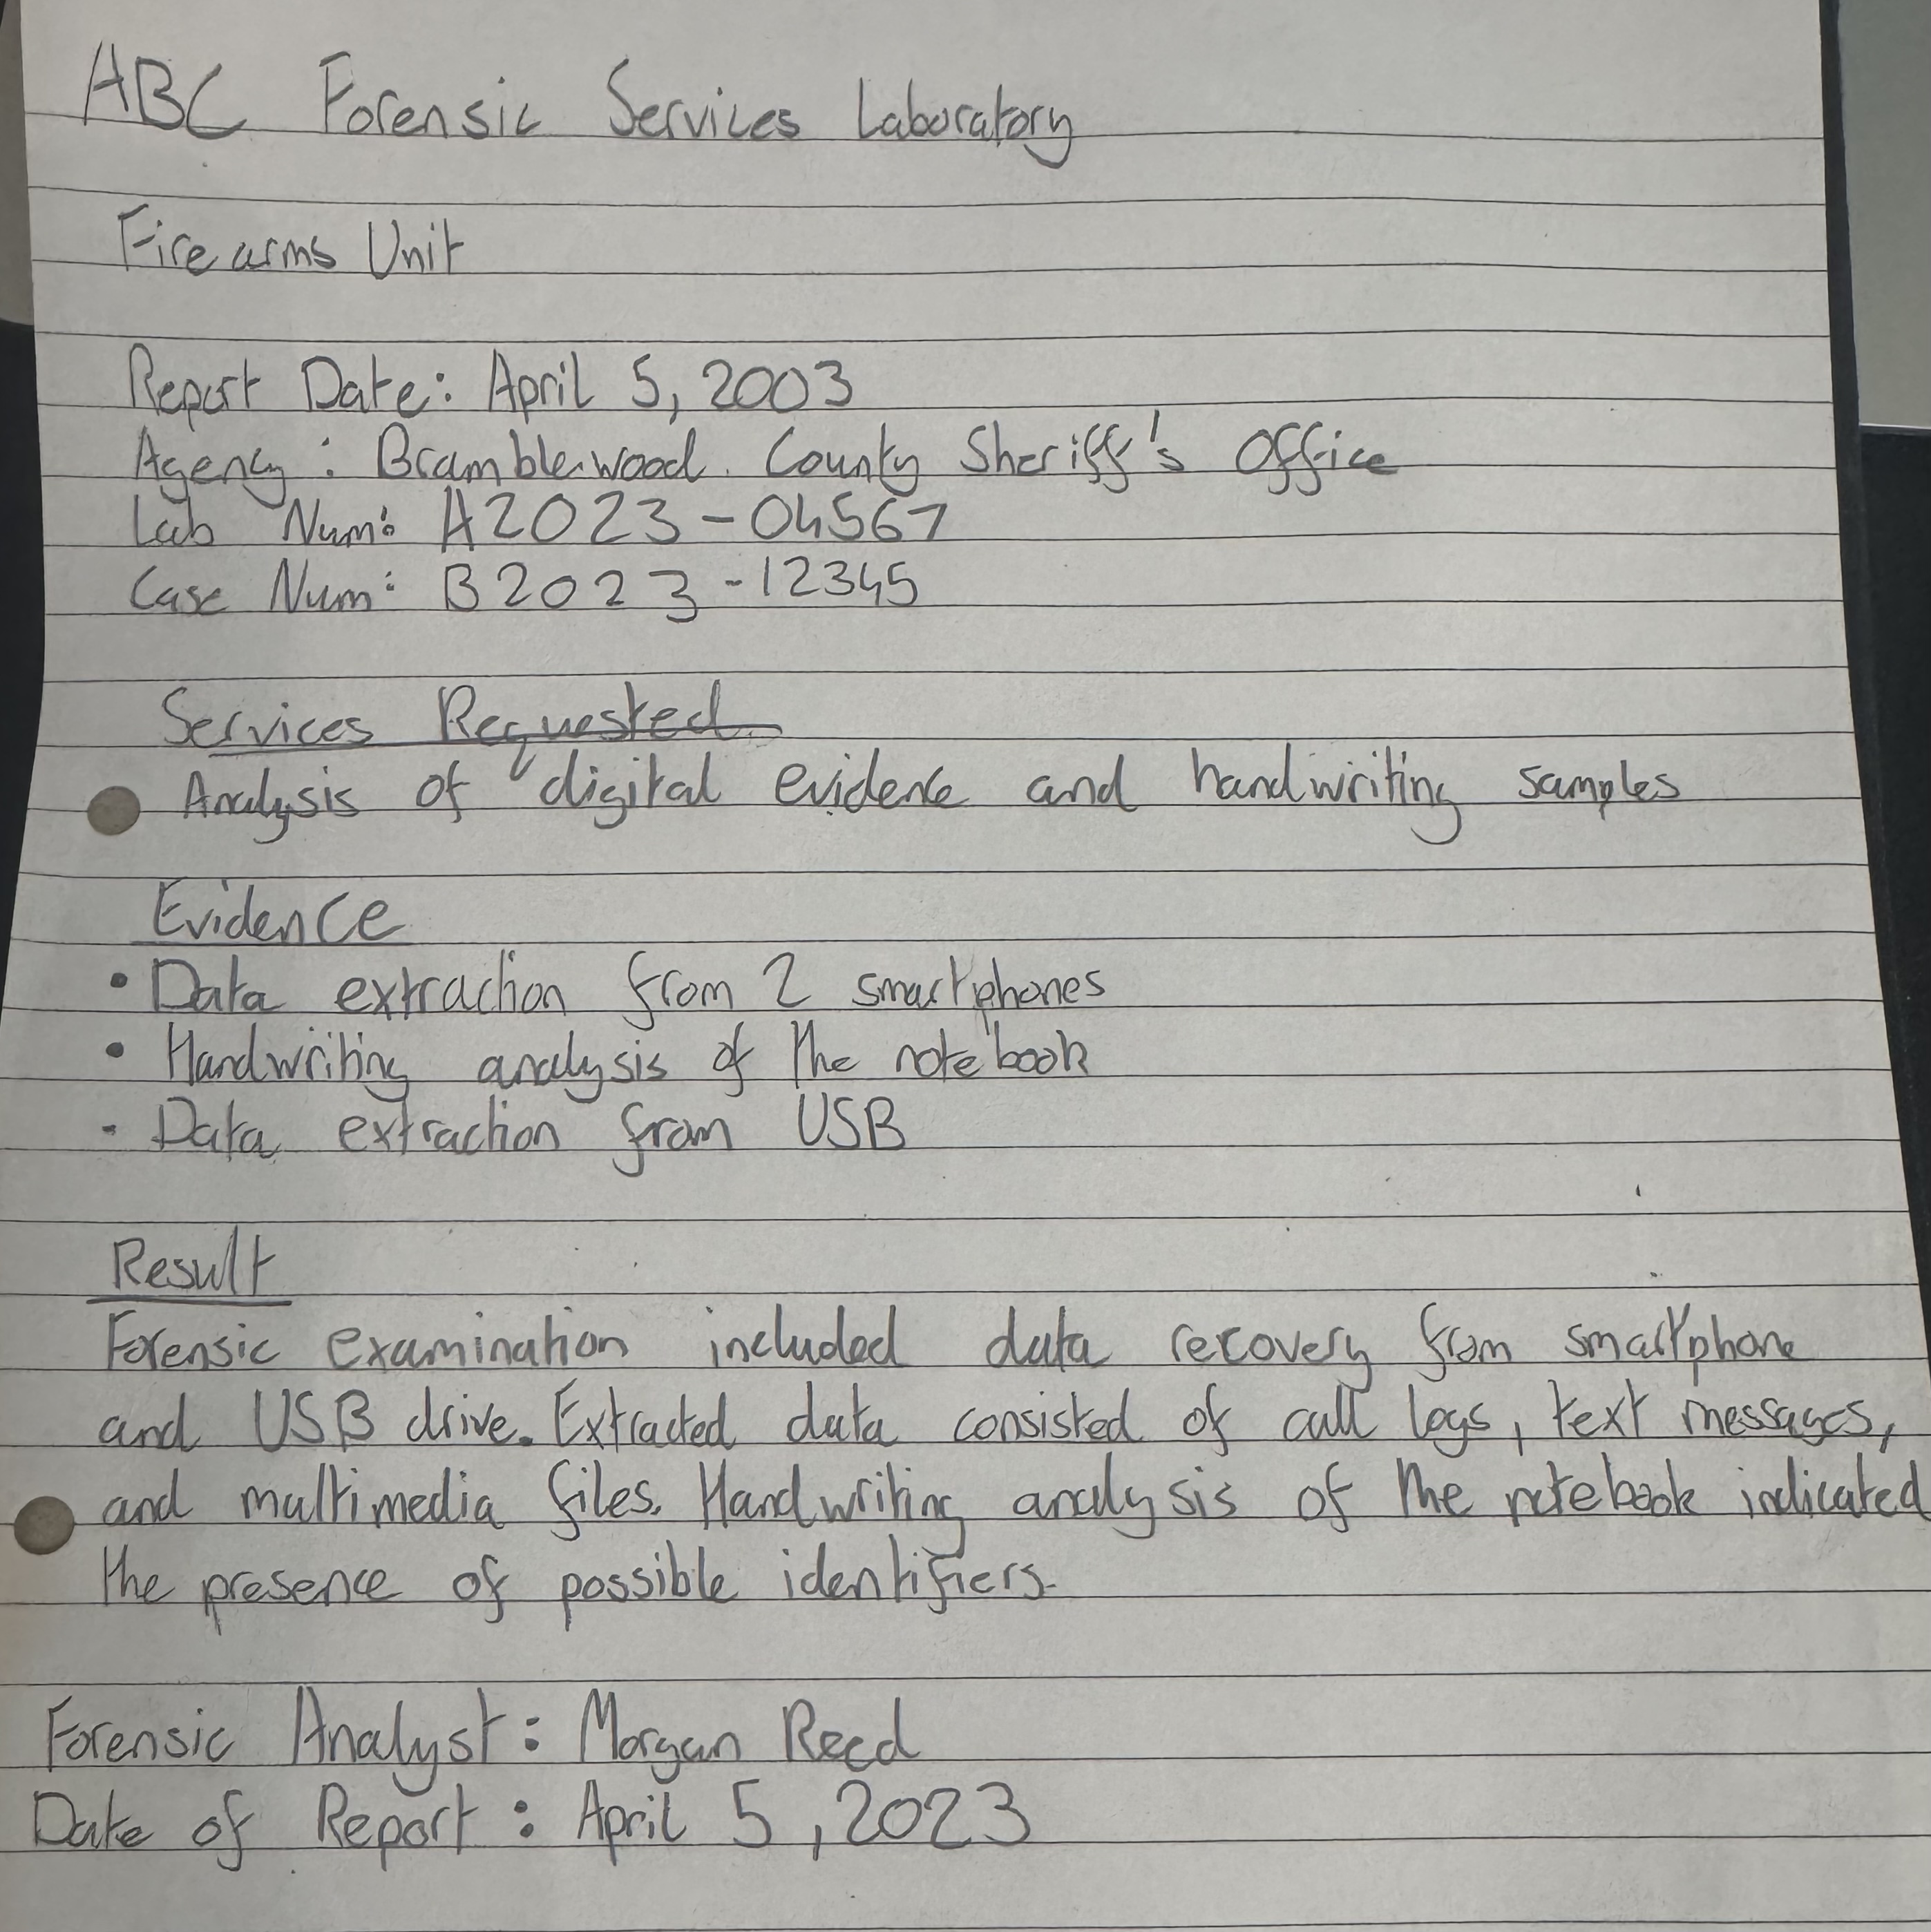 ABC Forensic Services Laboratory
Firearms Unit
Report Date: April 5, 2003
Agency: Bramblewood County Sheriff's Office
Lab Num: A2023-04567
Case Num: B2023-12345
Services Requested
Analysis of digital evidence and handwriting samples
Evidence
• Data extraction from 2 smartphones
• Handwriting analysis of the notebook
• Data extraction from USB
Result
Forensic examination included data recovery from smartphone
and USB drive. Extracted data consisted of call logs, text messages,
and multimedia files. Handwriting analysis of the notebook indicated
the presence of possible identifiers.
Forensic Analyst: Morgan Reed
Date of Report: April 5, 2023